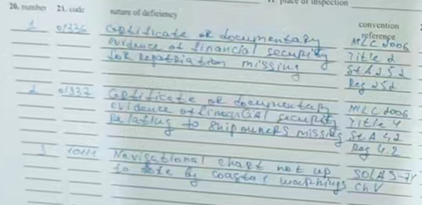 20. number 21. code nature of deficiency convention reference
1 01336 Certificate or documentary MLC 2006
evidence of financial security Title 2
for repatriation missing St A 2.5.2
Reg 2.5.2
2 01337 Certificate or documentary MLC 2006
evidence of financial security Title 4
relating to shipowners missing St A 4.2
Reg 4.2
3 Navigational chart not up SOLAS-74
to date by coastal warnings Ch V